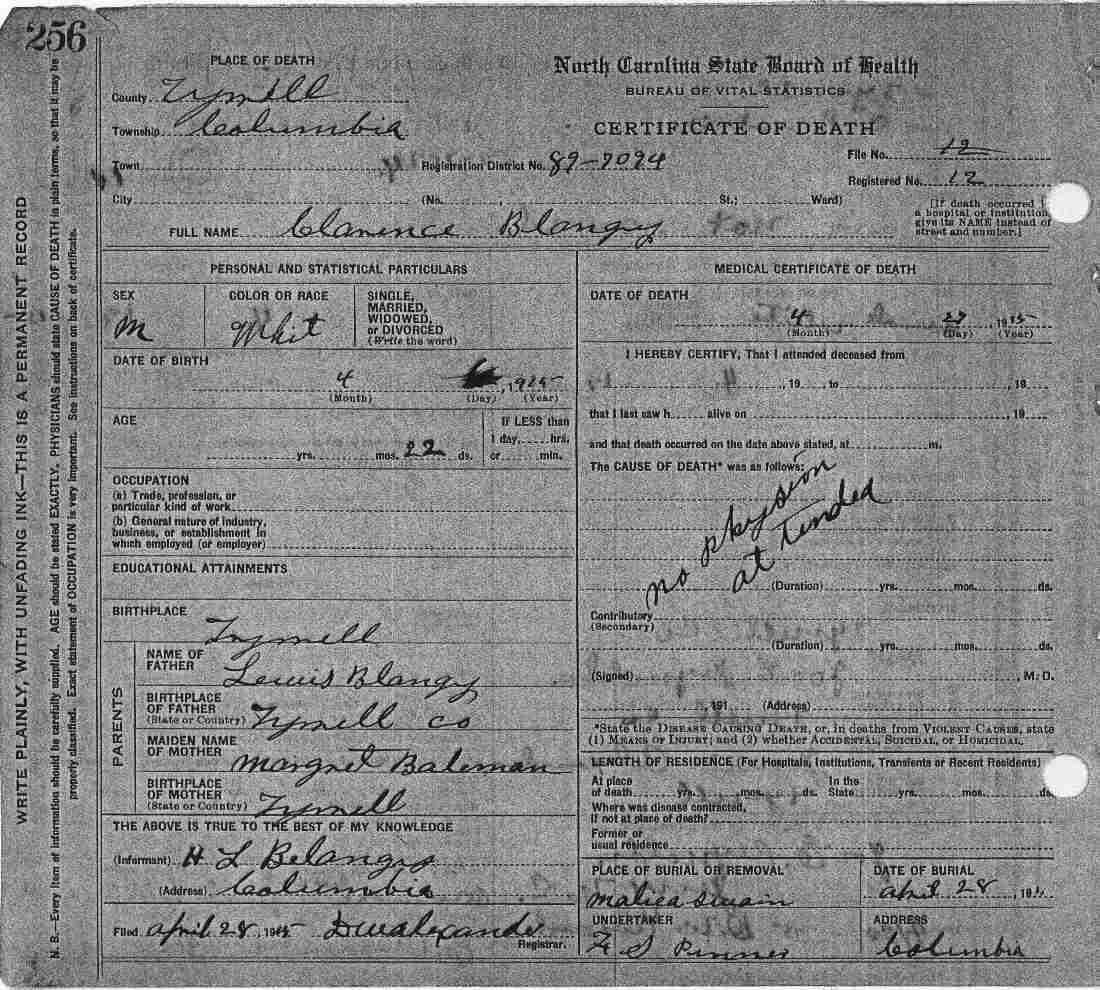 256
WRITE PLAINLY, WITH UNFADING INK—THIS IS A PERMANENT RECORD
N. B.—Every item of information should be carefully supplied. AGE should be stated EXACTLY. PHYSICIANS should state CAUSE OF DEATH in plain terms, so that it may be
properly classified. Exact statement of OCCUPATION is very important. See instructions on back of certificate.
PLACE OF DEATH
County Tyrrell
Township Columbia
Town
Registration District No. 89-7094
City (No. , St.; Ward)
North Carolina State Board of Health
BUREAU OF VITAL STATISTICS
CERTIFICATE OF DEATH
File No. 12
Registered No. 12
[If death occurred in
a hospital or institution,
give its NAME instead of
street and number.]
FULL NAME Clarence Blangy
PERSONAL AND STATISTICAL PARTICULARS
SEX
M
COLOR OR RACE
Whit
SINGLE,
MARRIED,
WIDOWED,
or DIVORCED
(Write the word)
DATE OF BIRTH
4 , 1915
(Month) (Day) (Year)
AGE
yrs. mos. 22 ds.
If LESS than
1 day, hrs.
or min.
OCCUPATION
(a) Trade, profession, or
particular kind of work
(b) General nature of industry,
business, or establishment in
which employed (or employer)
EDUCATIONAL ATTAINMENTS
BIRTHPLACE
Tyrrell
PARENTS
NAME OF
FATHER
Lewis Blangy
BIRTHPLACE
OF FATHER
(State or Country) Tyrrell co
MAIDEN NAME
OF MOTHER
Margret Bateman
BIRTHPLACE
OF MOTHER
(State or Country) Tyrrell
THE ABOVE IS TRUE TO THE BEST OF MY KNOWLEDGE
(Informant) H L Belangy
(Address) Columbia
Filed april 28, 1915 DWAlexander
Registrar.
MEDICAL CERTIFICATE OF DEATH
DATE OF DEATH
4 27, 1915
(Month) (Day) (Year)
I HEREBY CERTIFY, That I attended deceased from
, 19 , to , 19
that I last saw h alive on , 19
and that death occurred on the date above stated, at m.
The CAUSE OF DEATH* was as follows:
no physion
at tended
(Duration) yrs. mos. ds.
Contributory
(Secondary)
(Duration) yrs. mos. ds.
(Signed) , M. D.
191 (Address)
*State the DISEASE CAUSING DEATH, or, in deaths from VIOLENT CAUSES, state
(1) MEANS OF INJURY; and (2) whether ACCIDENTAL, SUICIDAL, OR HOMICIDAL.
LENGTH OF RESIDENCE (For Hospitals, Institutions, Transients or Recent Residents)
At place
of death yrs. mos. ds.
In the
State yrs. mos. ds.
Where was disease contracted,
if not at place of death?
Former or
usual residence
PLACE OF BURIAL OR REMOVAL
Malica Swain
DATE OF BURIAL
april 28, 191
UNDERTAKER
F S Pinner
ADDRESS
Columbia